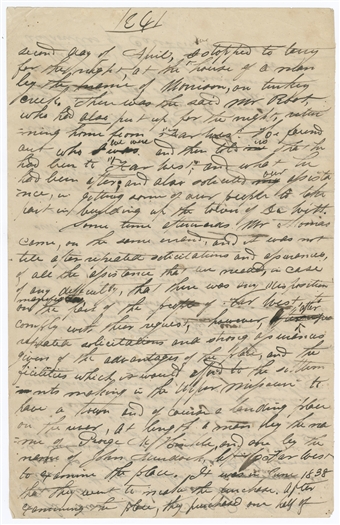 1841
second day of April, stopped to tarry
for the night, at the house of a man
by the name of Morrison, on turkey
creek. There was one said Mr Root,
who had also put up for the night, retur
ning home from "Far West." He found
out who we were, and then told us that he
had been to "Far West", and what he
had been after, and also solicited our assista
nce, in getting some of our people to take
part in building up the town of De Witt.
Some time afterwards Mr Thomas
came, on the same errand, and it was not
till after repeated solicitations and assurances,
of all the assistance that we needed in case
of any difficulty, that there was any disposition
on the part of the people of Far West, to
comply with their request, however, after
repeated solicitations and strong assurances
given of the advantages of the place, and the
facilities which it would afford to the settlem
ents making in the upper missouri to
have a town and of course a landing place
on the river, at length a man by the na
me of George M. Hinkle, and one by the
name of John Murdock, left Far West
to examine the place. It was in June 1838
that they went to make the purchase. After
examining the place, they purchased one half of